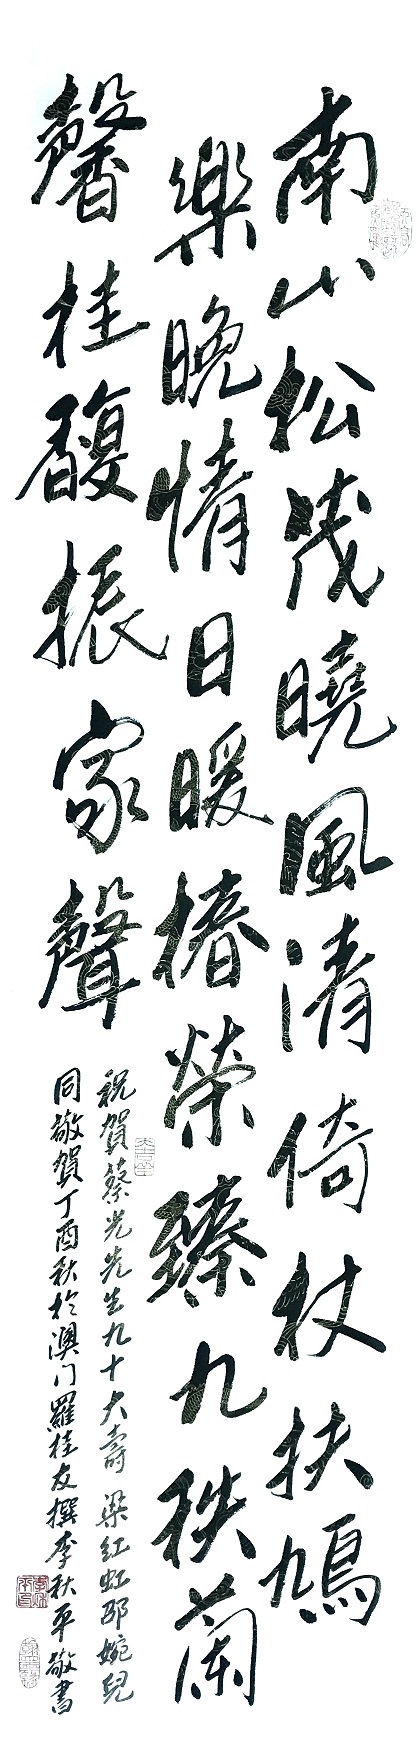 南山松茂曉風清倚杖扶鳩
樂晚情日暖椿榮臻九秩蘭
馨桂馥振家聲
祝賀蔡光先生九十大壽 梁紅虹邵婉兒
同敬賀丁酉秋於澳门羅桂友撰李秋平敬書